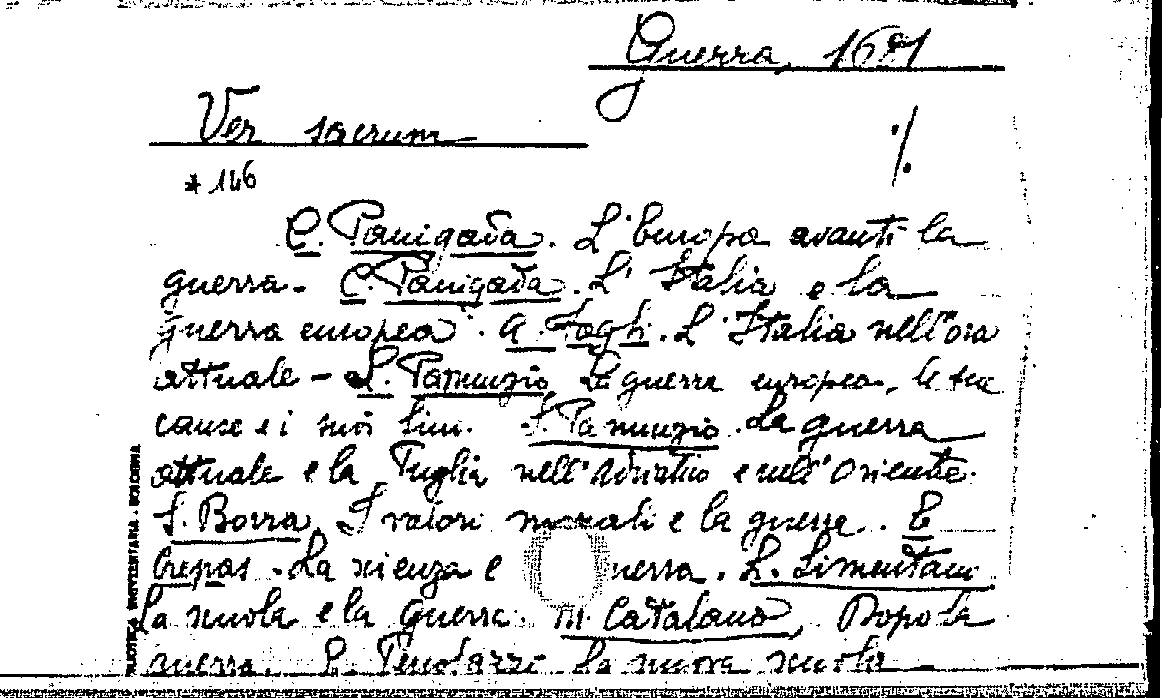 Guerra, 1681
Ver sacrum
* 146
./.
C. Panigada. L'Europa avanti la
guerra - C. Panigada. L'Italia e la
guerra europea. A. Foghi. L'Italia nell'ora
attuale - S. Panunzio La guerra europea, le sue
cause e i suoi fini. S. Panunzio. La guerra
attuale e la Puglia nell'Adriatico e nell'Oriente.
S. Borra, I valori morali e la guerra. E
Crepas. La scienza e guerra. L. Limentani
La scuola e la guerra. M. Catalano, Dopo la
guerra. La nuova scuola
BIBLIOTECA UNIVERSITARIA - BOLOGNA